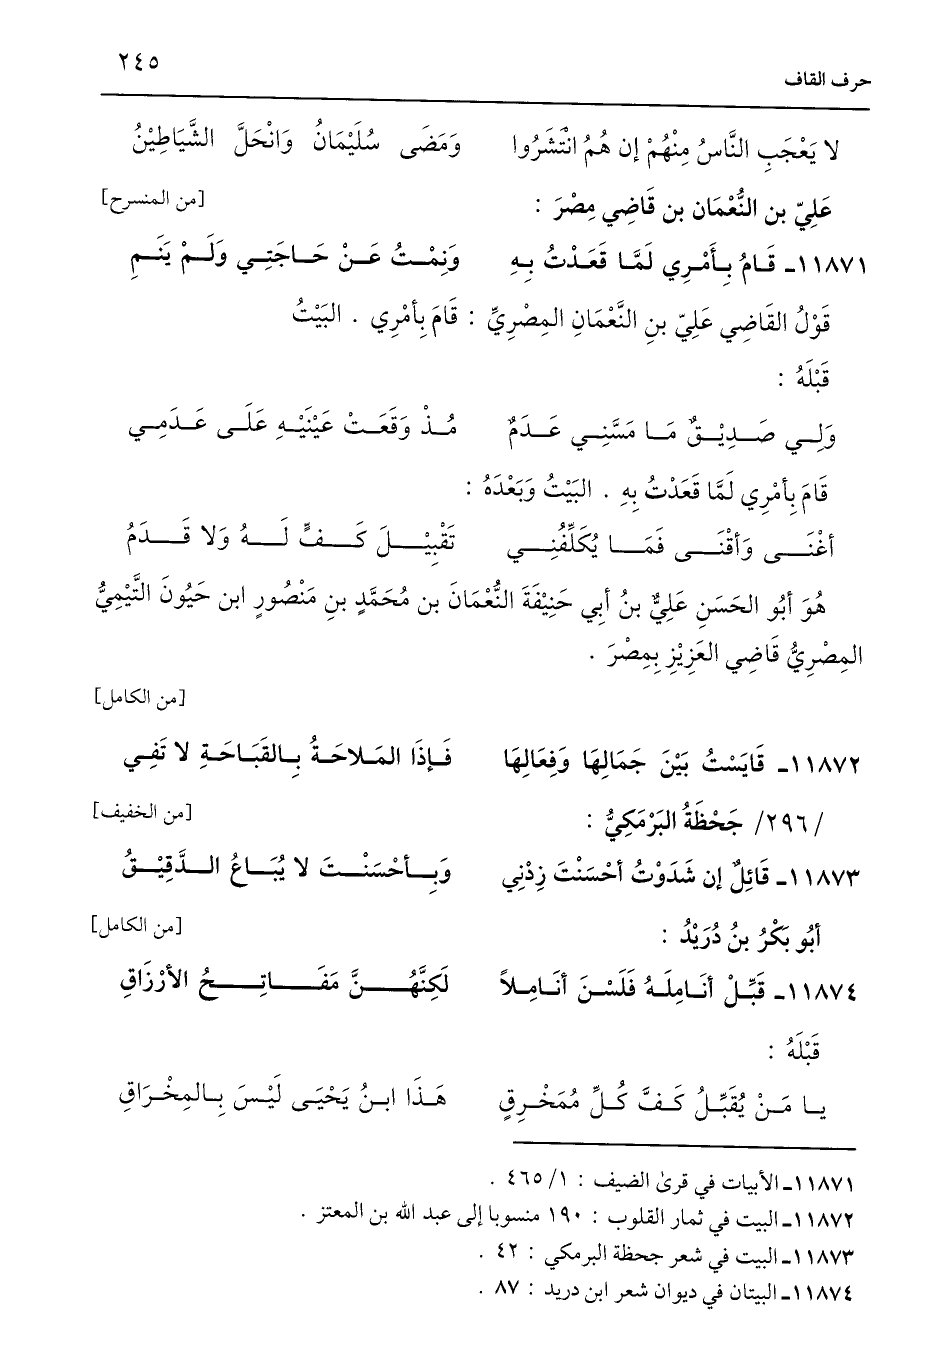 حرف القاف ٢٤٥
لا يَعْجَبِ النَّاسُ مِنْهُمْ إن هُمُ انْتَشَرُوا وَمَضَى سُلَيْمَانُ وَانْحَلَّ الشَّيَاطِيْنُ
عَلِيّ بن النُّعْمَان بن قَاضِي مِصْرَ : [من المنسرح]
١١٨٧١ـ قَـامُ بِـأَمْرِي لَمَّـا قَعَـدْتُ بِـهِ وَنِمْـتُ عَـنْ حَـاجَتِـي وَلَـمْ يَنَـمِ
قَوْلُ القَاضِي عَلِيّ بنِ النَّعْمَانِ المِصْرِيِّ : قَامَ بِأمْرِي . البَيْتُ
قَبْلَهُ :
وَلِـي صَـدِيْـقٌ مَـا مَسَّنِـي عَـدَمٌ مُـذْ وَقَعَـتْ عَيْنَيْـهِ عَلَـى عَـدَمِـي
قَامَ بِأمْرِي لَمَّا قَعَدْتُ بِهِ . البَيْتُ وَبَعْدَهُ :
أغْنَـــى وَأقْنَـــى فَمَـــا يُكَلِّفُنِـــي تَقْبِيْـــلَ كَـــفٍّ لَـــهُ وَلا قَـــدَمُ
هُوَ أبُو الحَسَنِ عَلِيٌّ بنُ أبي حَنِيْفَةَ النُّعْمَانَ بن مُحَمَّدٍ بنِ مَنْصُورٍ ابن حَيُونَ التَّيْمِيُّ
المِصْرِيُّ قَاضِي العَزِيْزِ بِمِصْرَ .
[من الكامل]
١١٨٧٢ـ قَايَسْتُ بَيْنَ جَمَالِهَا وَفِعَالِهَا فَـإذَا المَـلاحَـةُ بِـالقَبَاحَـةِ لا تَفِـي
/٢٩٦/ جَحْظَةُ البَرْمَكِيُّ : [من الخفيف]
١١٨٧٣ـ قَائِلٌ إن شَدَوْتُ أحْسَنْتَ زِدْنِي وَبِـــأحْسَنْـــتَ لا يُبَـــاعُ الـــدَّقِيْـــقُ
أبُو بَكْرُ بنُ دُرَيْدُ : [من الكامل]
١١٨٧٤ـ قَبِّـلْ أنَـامِلَـهُ فَلَسْـنَ أنَـامِـلاً لَكِنَّهُـــنَّ مَفَـــاتِـــحُ الأرْزَاقِ
قَبْلَهُ :
يـا مَـنْ يُقَبِّـلُ كَـفَّ كُـلِّ مُمَخْـرِقٍ هَـذَا ابـنُ يَحْيَـى لَيْـسَ بِـالمِخْـرَاقِ
١١٨٧١ـ الأبيات في قرىٰ الضيف : ١/ ٤٦٥ .
١١٨٧٢ـ البيت في ثمار القلوب : ١٩٠ منسوبا إلى عبد الله بن المعتز .
١١٨٧٣ـ البيت في شعر جحظة البرمكي : ٤٢ .
١١٨٧٤ـ البيتان في ديوان شعر ابن دريد : ٨٧ .